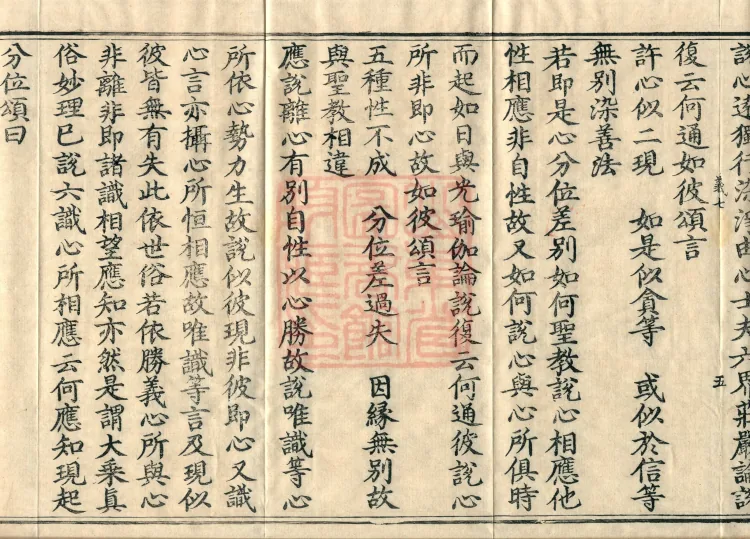 說心遠獨行染淨由心士夫六界莊嚴論說
義七 五
復云何通如彼頌言
許心似二現 如是似貪等 或似於信等
無別染善法
若即是心分位差別如何聖教說心相應他
性相應非自性故又如何說心與心所俱時
而起如日與光瑜伽論說復云何通彼說心
所非即心故如彼頌言
五種性不成 分位差過失 因緣無別故
與聖教相違
應說離心有別自性以心勝故說唯識等心
所依心勢力生故說似彼現非彼即心又識
心言亦攝心所恒相應故唯識等言及現似
彼皆無有失此依世俗若依勝義心所與心
非離非即諸識相望應知亦然是謂大乘真
俗妙理已說六識心所相應云何應知現起
分位頌曰